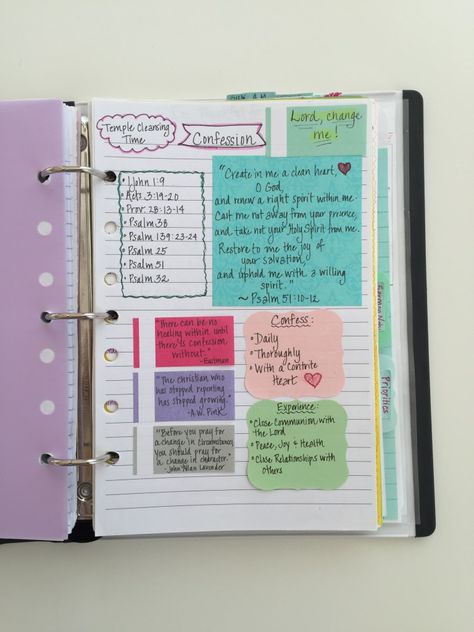 Temple Cleansing
Time
Confession
Lord, change
me!
1 John 1:9
Acts 3:19-20
Prov. 28:13-14
Psalm 38
Psalm 139:23-24
Psalm 25
Psalm 51
Psalm 32
"Create in me a clean heart,
O God,
and renew a right spirit within me.
Cast me not away from your presence,
and take not your Holy Spirit from me.
Restore to me the joy of
your salvation,
and uphold me with a willing
spirit."
~ Psalm 51:10-12
"There can be no
healing within until
there is confession
without." -Eastman
The christian who
has stopped repenting
has stopped growing."
-A.W. Pink
"Before you pray for
a change in circumstances,
you should pray for
a change in character."
-John Alan Lavender
Confess:
Daily
Thoroughly
With a Contrite
Heart
Experience:
Close Communion with
the Lord
Peace, Joy & Health
Close Relationships with
others
Priorities